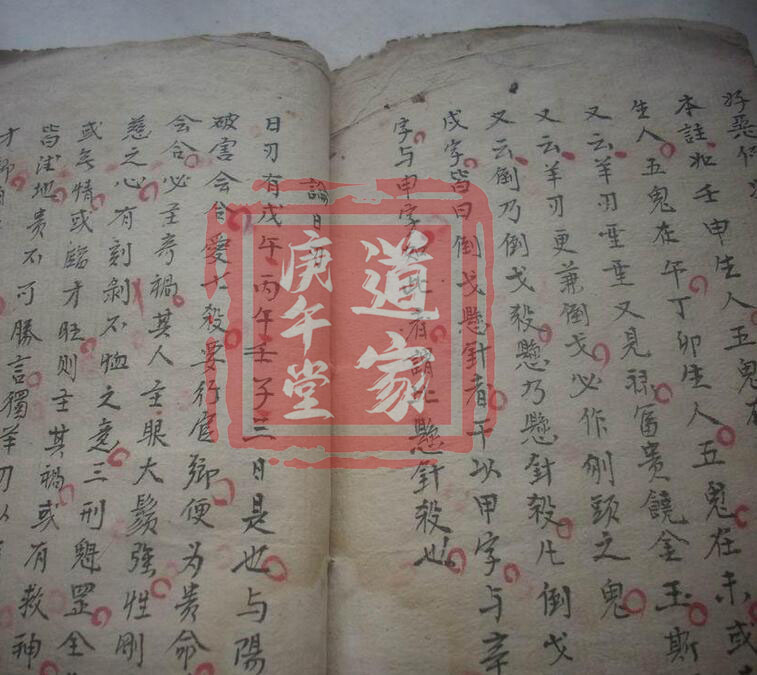 本註如壬申生人五鬼在午丁卯生人五鬼在未或
生人五鬼在午丁卯生人五鬼在未或
又云羊刃重重又見祿富貴饒金玉斯
又云羊刃更兼倒戈必作刎頸之鬼
又云倒乃倒戈殺懸乃懸針殺凡倒戈
戌字皆曰倒戈懸針者干以甲字与辛
字与申字如此者謂之懸針殺也
論日刃
日刃有戊午丙午壬子三日是也与陽
破害会合愛七殺要行官鄉便为贵命
会合必主奇禍其人主眼大鬚強性剛
慈之心有刻剥不恤之意三刑魁罡全
或無情或臨才旺则主其禍或有救神
皆法地贵不可勝言獨羊刃以
道家
庚午堂